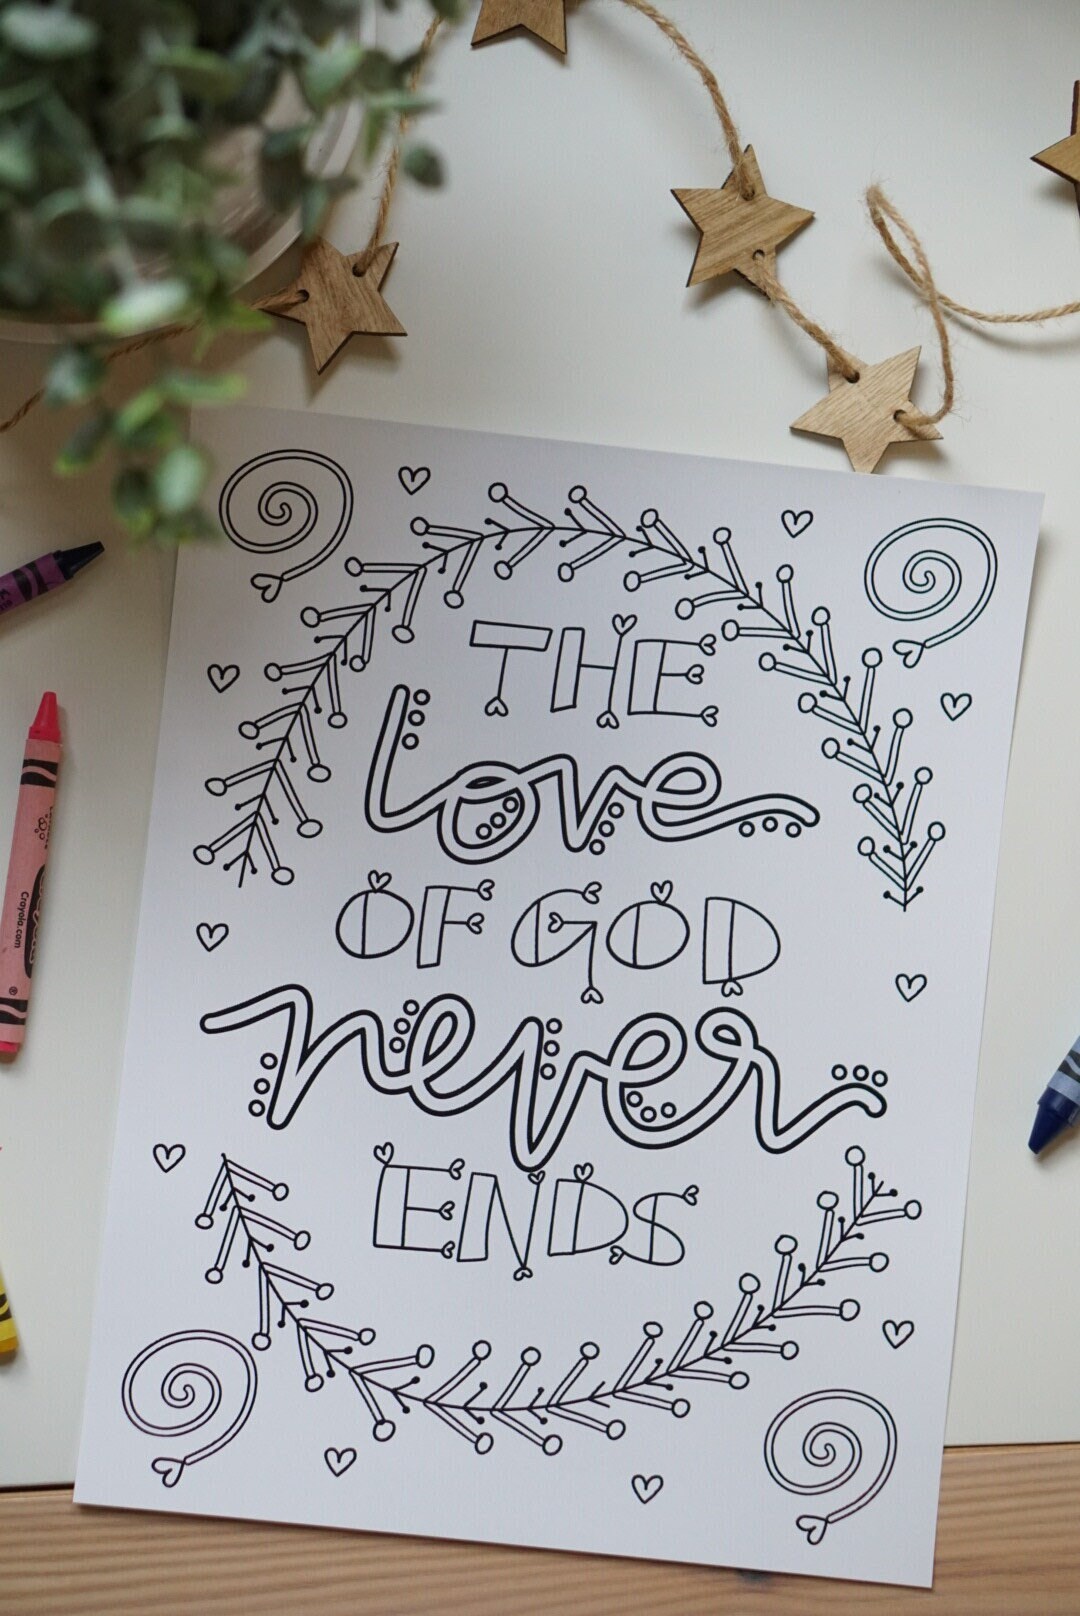 THE
love
OF GOD
never
ENDS
Crayola.com